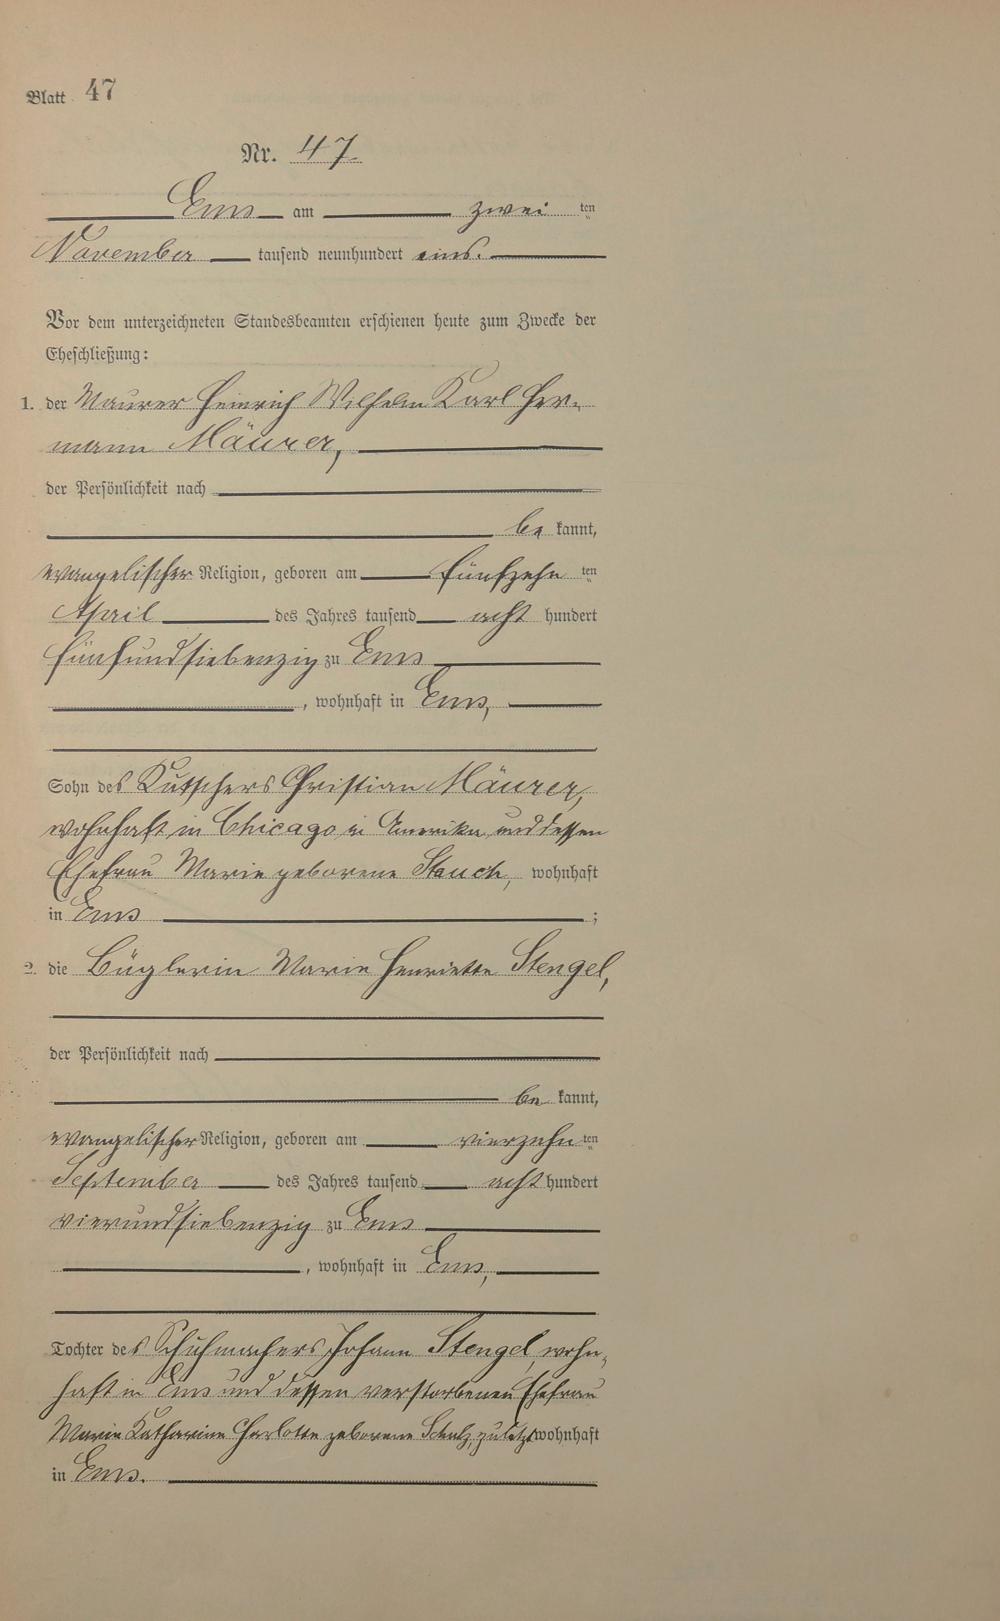 Blatt 47
Nr. 47.
Ems am zwei ten
November tausend neunhundert eins.
Vor dem unterzeichneten Standesbeamten erschienen heute zum Zwecke der
Eheschließung:
1. der Maurer Heinrich Wilhelm Karl Her-
mann Mäurer,
der Persönlichkeit nach
be kannt,
evangelischer Religion, geboren am fünfzehn ten
April des Jahres tausend acht hundert
fünfundsiebenzig zu Ems
, wohnhaft in Ems,
Sohn des Kutschers Christian Mäurer,
wohnhaft in Chicago in Amerika und dessen
Ehefrau Marie geborene Stauch, wohnhaft
in Ems ;
2. die Büglerin Marie Henriette Stengel,
der Persönlichkeit nach
be kannt,
evangelischer Religion, geboren am vierzehn ten
September des Jahres tausend acht hundert
vierundsiebenzig zu Ems
, wohnhaft in Ems,
Tochter des Schuhmachers Johann Stengel, wohn-
haft in Ems und dessen verstorbenen Ehefrau
Marie Katharine Charlotte geborene Schulz, zuletzt wohnhaft
in Ems.